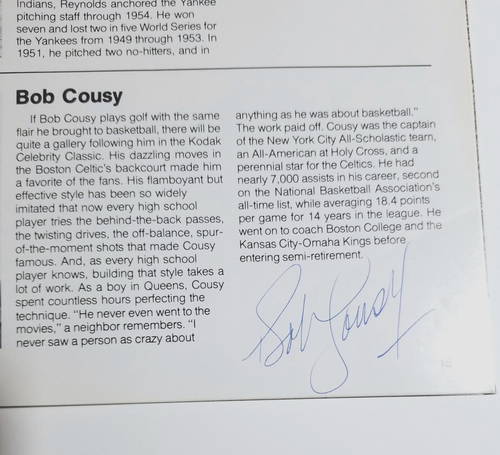 Indians, Reynolds anchored the Yankee
pitching staff through 1954. He won
seven and lost two in five World Series for
the Yankees from 1949 through 1953. In
1951, he pitched two no-hitters, and in
Bob Cousy
If Bob Cousy plays golf with the same
flair he brought to basketball, there will be
quite a gallery following him in the Kodak
Celebrity Classic. His dazzling moves in
the Boston Celtic's backcourt made him
a favorite of the fans. His flamboyant but
effective style has been so widely
imitated that now every high school
player tries the behind-the-back passes,
the twisting drives, the off-balance, spur-
of-the-moment shots that made Cousy
famous. And, as every high school
player knows, building that style takes a
lot of work. As a boy in Queens, Cousy
spent countless hours perfecting the
technique. "He never even went to the
movies," a neighbor remembers. "I
never saw a person as crazy about
anything as he was about basketball."
The work paid off. Cousy was the captain
of the New York City All-Scholastic team,
an All-American at Holy Cross, and a
perennial star for the Celtics. He had
nearly 7,000 assists in his career, second
on the National Basketball Association's
all-time list, while averaging 18.4 points
per game for 14 years in the league. He
went on to coach Boston College and the
Kansas City-Omaha Kings before
entering semi-retirement.
Bob Cousy